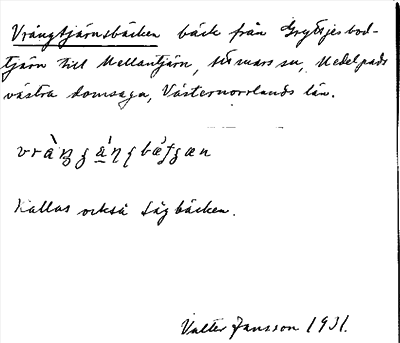 Vrångtjärnsbäcken bäck från Grytsjesbod-
tjärn till Mellantjärn, Stuvars sn, Medelpads
västra domsaga, Västernorrlands län.
Kallas också Sågbäcken.
Valter Jansson 1931.